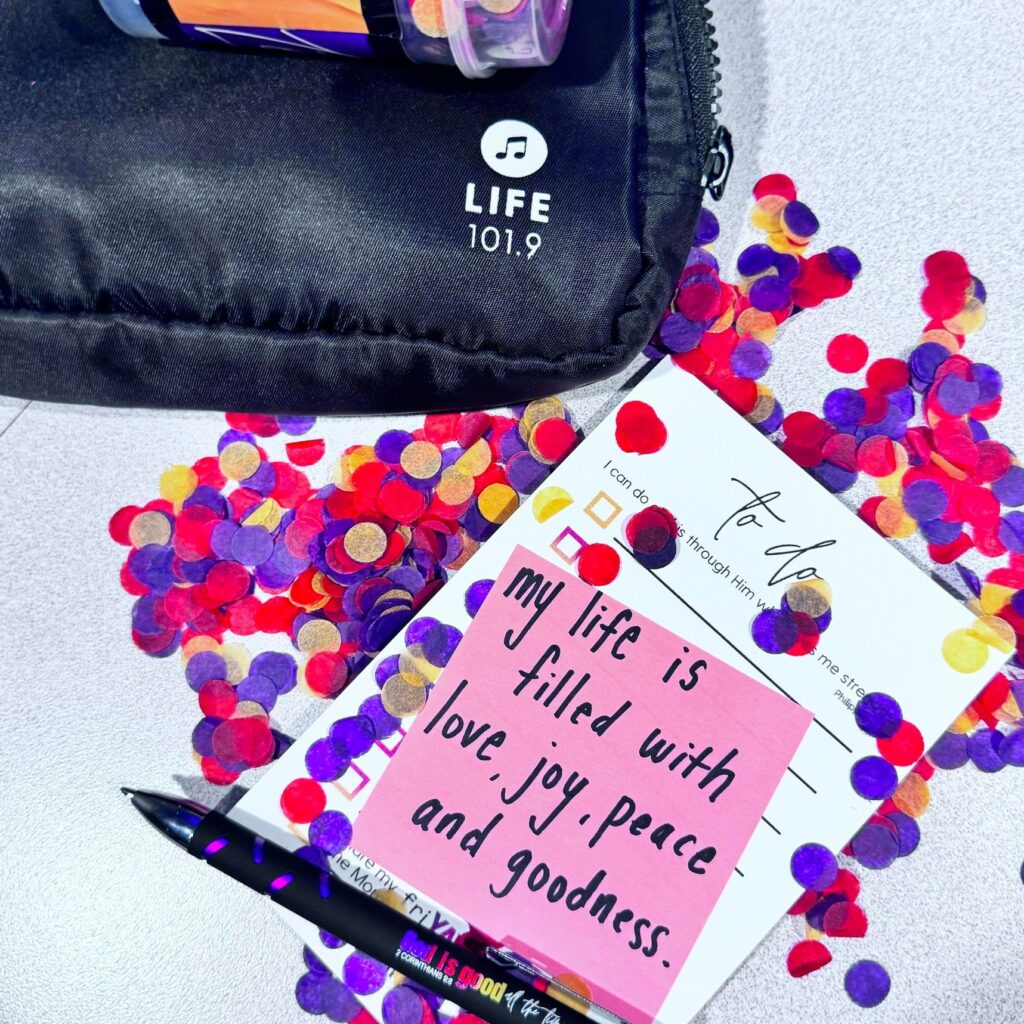 LIFE
101.9
to do
I can do this through Him me
my life is
filled with
love, joy, peace
and goodness.
my friYAY
God is good all the
2 CORINTHIANS 9:8